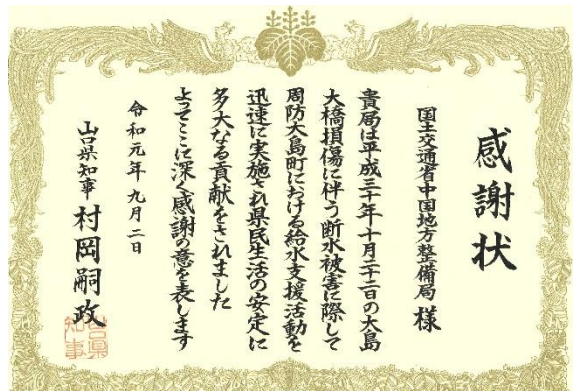 感謝状
国土交通省中国地方整備局 様
貴局は平成三十年十月二十二日の大島
大橋損傷に伴う断水被害に際して
周防大島町における給水支援活動を
迅速に実施され県民生活の安定に
多大なる貢献をされました
よってここに深く感謝の意を表します
令和元年九月二日
山口県知事 村岡嗣政
山口県
知事